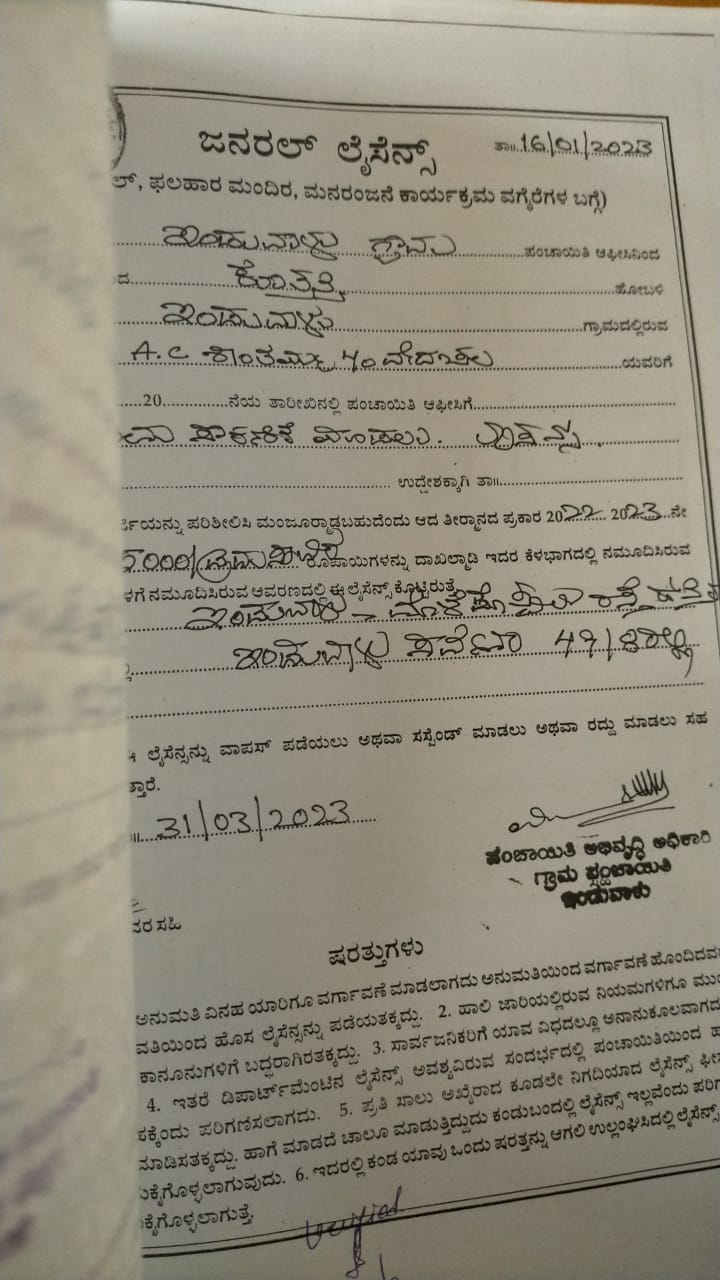 ಜನರಲ್ ಲೈಸೆನ್ಸ್ ತಾ॥ 16/01/2023
ಲ್, ಫಲಹಾರ ಮಂದಿರ, ಮನರಂಜನೆ ಕಾರ್ಯಕ್ರಮ ವಗೈರೆಗಳ ಬಗ್ಗೆ)
ಇಂಡುವಾಳು ಗ್ರಾಮ ಪಂಚಾಯಿತಿ ಆಫೀಸಿನಿಂದ
ದ ಕೊತ್ತತ್ತಿ ಹೋಬಳಿ
ಇಂಡುವಾಳು ಗ್ರಾಮದಲ್ಲಿರುವ
A.C ಯವರಿಗೆ
20 ನೆಯ ತಾರೀಖಿನಲ್ಲಿ ಪಂಚಾಯಿತಿ ಆಫೀಸಿಗೆ
ಉದ್ದೇಶಕ್ಕಾಗಿ ತಾ॥
ರ್ಜಿಯನ್ನು ಪರಿಶೀಲಿಸಿ ಮಂಜೂರ್‍ಮಾಡ್ಬಹುದೆಂದು ಆದ ತೀರ್ಮಾನದ ಪ್ರಕಾರ 2022 2023 ನೇ
5000/ ರೂಪಾಯಿಗಳನ್ನು ದಾಖಲ್ಮಾಡಿ ಇದರ ಕೆಳಭಾಗದಲ್ಲಿ ನಮೂದಿಸಿರುವ
ಳಗೆ ನಮೂದಿಸಿರುವ ಆವರಣದಲ್ಲಿ ಈ ಲೈಸೆನ್ಸ್ ಕೊಟ್ಟಿರುತ್ತೆ
ಇಂಡುವಾಳು - ರಸ್ತೆ
ಇಂಡುವಾಳು 47/
ಈ ಲೈಸೆನ್ಸನ್ನು ವಾಪಸ್ ಪಡೆಯಲು ಅಥವಾ ಸಸ್ಪೆಂಡ್ ಮಾಡಲು ಅಥವಾ ರದ್ದು ಮಾಡಲು ಸಹ
ತ್ತಾರೆ.
31/03/2023
ಪಂಚಾಯಿತಿ ಅಭಿವೃದ್ಧಿ ಅಧಿಕಾರಿ
ಗ್ರಾಮ ಪಂಚಾಯಿತಿ
ಇಂಡುವಾಳು
ವರ ಸಹಿ
ಷರತ್ತುಗಳು
ಅನುಮತಿ ವಿನಹ ಯಾರಿಗೂ ವರ್ಗಾವಣೆ ಮಾಡಲಾಗದು ಅನುಮತಿಯಿಂದ ವರ್ಗಾವಣೆ ಹೊಂದಿದವ
ವತಿಯಿಂದ ಹೊಸ ಲೈಸೆನ್ಸನ್ನು ಪಡೆಯತಕ್ಕದ್ದು. 2. ಹಾಲಿ ಜಾರಿಯಲ್ಲಿರುವ ನಿಯಮಗಳಿಗೂ ಮುಂ
ಕಾನೂನುಗಳಿಗೆ ಬದ್ಧರಾಗಿರತಕ್ಕದ್ದು. 3. ಸಾರ್ವಜನಿಕರಿಗೆ ಯಾವ ವಿಧದಲ್ಲೂ ಅನಾನುಕೂಲವಾಗದ
4. ಇತರೆ ಡಿಪಾರ್ಟ್‌ಮೆಂಟಿನ ಲೈಸೆನ್ಸ್ ಅವಶ್ಯವಿರುವ ಸಂದರ್ಭದಲ್ಲಿ ಪಂಚಾಯಿತಿಯಿಂದ ಹ
ಸಕ್ಕೆಂದು ಪರಿಗಣಿಸಲಾಗದು. 5. ಪ್ರತಿ ಸಾಲು ಅಖೈರಾದ ಕೂಡಲೇ ನಿಗದಿಯಾದ ಲೈಸೆನ್ಸ್ ಫೀಸ
ಮಾಡಿಸತಕ್ಕದ್ದು. ಹಾಗೆ ಮಾಡದೆ ಚಾಲೂ ಮಾಡುತ್ತಿದ್ದುದು ಕಂಡುಬಂದಲ್ಲಿ ಲೈಸೆನ್ಸ್ ಇಲ್ಲವೆಂದು ಪರಿಗ
ುಕೈಗೊಳ್ಳಲಾಗುವುದು. 6. ಇದರಲ್ಲಿ ಕಂಡ ಯಾವು ಒಂದು ಷರತ್ತನ್ನು ಆಗಲಿ ಉಲ್ಲಂಘಿಸಿದಲ್ಲಿ ಲೈಸೆನ್ಸ್
ಕೈಗೊಳ್ಳಲಾಗುತ್ತೆ.
Verified